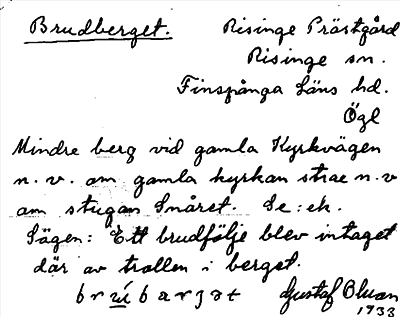 Brudberget. Risinge Prästgård
Risinge sn.
Finspånga Läns hd.
Ögl
Mindre berg vid gamla Kyrkvägen
n.v. om gamla kyrkan strax n.v
om stugan Snåret. Se: ek.
Sägen: Ett brudfölje blev intaget
där av trollen i berget.
Gustaf
1933